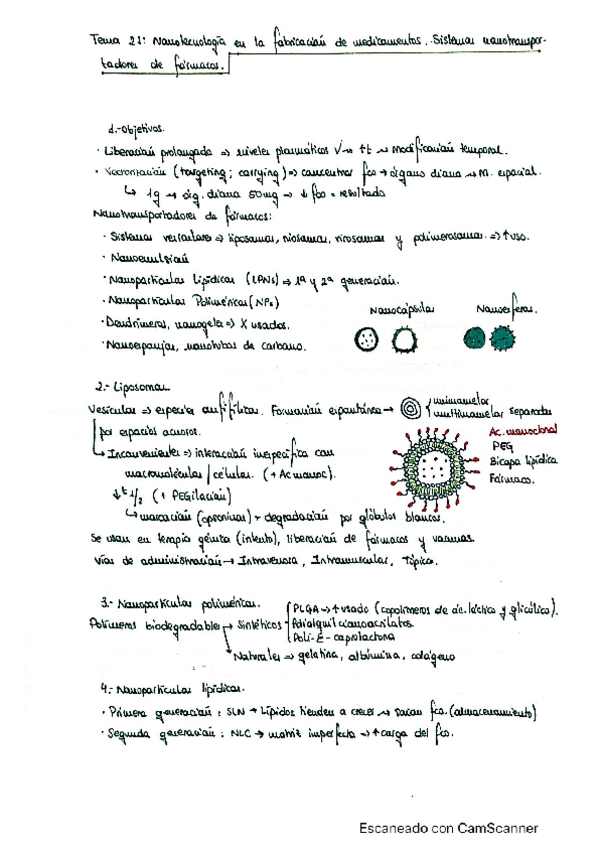 Tema 21: Nanotecnología en la fabricación de medicamentos. Sistemas nanotranspor-
tadores de fármacos.
1.-Objetivos.
· Liberación prolongada => niveles plasmáticos √ → ↑t → Modificación temporal.
· Vectorización (targeting; carrying) => concentrar fco → órgano diana → M. espacial.
↳ 1g → órg. diana 50mg → ↓ fco = resultado
Nanotransportadores de fármacos:
· Sistemas vesiculares => liposomas, niosomas, virosomas y polimerosomas. => ↑uso.
· Nanoemulsión
· Nanopartículas Lipídicas (LPNs) => 1ª y 2ª generación.
· Nanopartículas Poliméricas (NPs)
· Dendrímeros, nanogeles => X usados.
· Nanoesponjas, nanotubos de carbono.
Nanocápsulas Nanoesferas.
2.- Liposomas.
Vesículas => especies anfifílicas. Formación espontánea → unilamelar
multilamelar separadas
por espacios acuosos.
↳ Inconvenientes => interacción inespecífica con
macromoléculas / células. (+ Ac monoc.)
↓ t 1/2 (+ PEGilación)
↳ marcación (opsoninas) + degradación por glóbulos blancos.
Ac. monoclonal
PEG
Bicapa lipídica
Fármaco.
Se usan en terapia génica (intento), liberación de fármacos y vacunas.
Vías de administración → Intravenosa, Intramuscular, Tópica.
3.- Nanopartículas poliméricas.
Polímeros biodegradables → Sintéticos
PLGA → ↑usado (copolímeros de ác. láctico y glicólico).
Polialquilcianoacrilatos.
Poli-ε-caprolactona
Naturales => gelatina, albúmina, colágeno
4.- Nanopartículas lipídicas.
· Primera generación: SLN → Lípidos tienden a crecer → sacan fco. (almacenamiento)
· Segunda generación: NLC → matriz imperfecta → ↑ carga del fco.
Escaneado con CamScanner